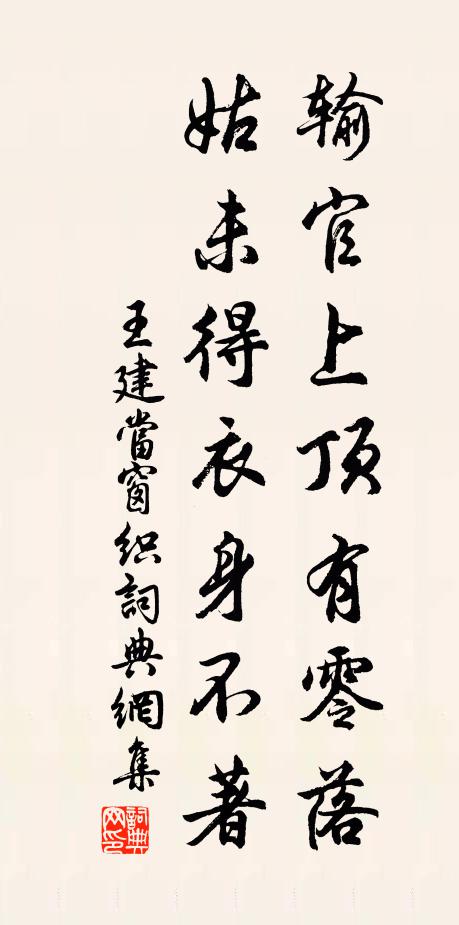 输官上顶有零落
姑未得衣身不著
王建當窗织詞典網集
詞典网印